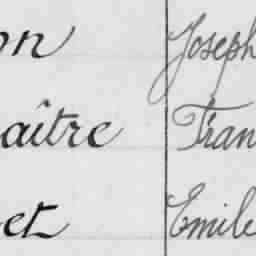 on Joseph
aître Fran
et Emile